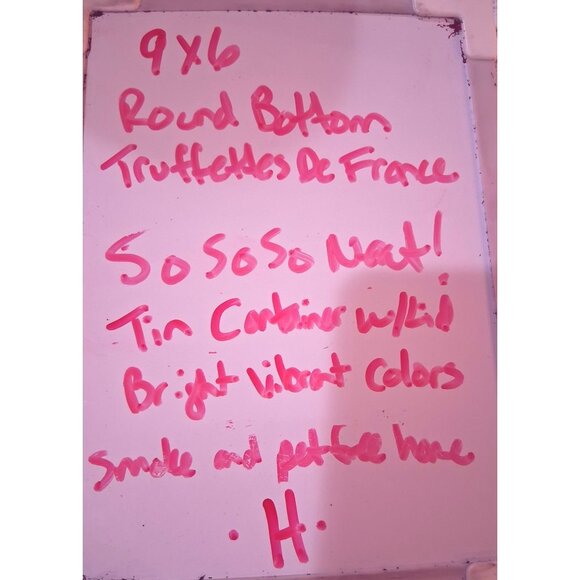 9x6
Round Bottom
Truffettes De France
So So So Neat!
Tin Container w/Lid
Bright Vibrant Colors
Smoke and pet free home
·H·